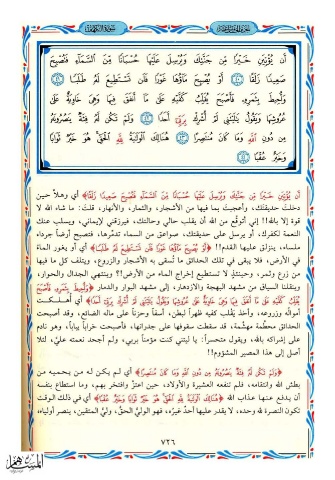 أَن يُؤْتِيَنِ خَيْرًا مِّن جَنَّتِكَ وَيُرْسِلَ عَلَيْهَا حُسْبَانًا مِّنَ السَّمَاءِ فَتُصْبِحَ
صَعِيدًا زَلَقًا ﴿٤٠﴾ أَوْ يُصْبِحَ مَاؤُهَا غَوْرًا فَلَن تَسْتَطِيعَ لَهُ طَلَبًا ﴿٤١﴾
وَأُحِيطَ بِثَمَرِهِ فَأَصْبَحَ يُقَلِّبُ كَفَّيْهِ عَلَى مَا أَنفَقَ فِيهَا وَهِيَ خَاوِيَةٌ عَلَى
عُرُوشِهَا وَيَقُولُ يَالَيْتَنِي لَمْ أُشْرِكْ بِرَبِّي أَحَدًا ﴿٤٢﴾ وَلَمْ تَكُن لَّهُ فِئَةٌ يَنصُرُونَهُ
مِن دُونِ اللَّهِ وَمَا كَانَ مُنتَصِرًا ﴿٤٣﴾ هُنَالِكَ الْوَلَايَةُ لِلَّهِ الْحَقِّ هُوَ خَيْرٌ ثَوَابًا
وَخَيْرٌ عُقْبًا ﴿٤٤﴾
أَن يُؤْتِيَنِ خَيْرًا مِّن جَنَّتِكَ وَيُرْسِلَ عَلَيْهَا حُسْبَانًا مِّنَ السَّمَاءِ فَتُصْبِحَ صَعِيدًا زَلَقًا﴾ أي وهلاّ حين
دخلت حديقتك، وأعجبت بما فيها من الأشجار، والثمار، والأنهار، قلت: ما شاء الله لا
قوة إلا بالله!! إني أتوقّع من الله أن يقلب حالي وحالتك، فيرزقني لإيماني، ويسلب عنك
النعمة لكفرك، أو يرسل على حديقتك، صواعق من السماء تدمّرها، فتصبح أرضاً جرداء
ملساء، ينزلق عليها القدم!! ﴿أَوْ يُصْبِحَ مَاؤُهَا غَوْرًا فَلَن تَسْتَطِيعَ لَهُ طَلَبًا﴾ أي أو يغور الماء
في الأرض، فلا يبقى في تلك الحدائق ما تُسقى به الأشجار والزروع، ويتلف كل ما فيها
من زرع وثمر، وحينئذٍ لا تستطيع إخراج الماء من الأرض!! وينتهي الجدال والحوار،
وينقلنا السياق من مشهد البهجة والازدهار، إلى مشهد البوار والدمار ﴿وَأُحِيطَ بِثَمَرِهِ فَأَصْبَحَ
يُقَلِّبُ كَفَّيْهِ عَلَى مَا أَنفَقَ فِيهَا وَهِيَ خَاوِيَةٌ عَلَى عُرُوشِهَا وَيَقُولُ يَالَيْتَنِي لَمْ أُشْرِكْ بِرَبِّي أَحَدًا﴾ أي أُهلكت
أمواله وزروعه، وأخذ يُقلّب كفيه ظهراً لبطن، أسفاً وحزناً على ماله الضائع، وقد أصبحت
الحدائق محطّمة مهشّمة، قد سقطت سقوفها على جدرانها، فأصبحت خراباً يباباً، وهو نادم
على إشراكه بالله، ويقول متحسراً: يا ليتني كنت مؤمناً بربي، ولم أجحد نعمه عليّ، لئلا
أصل إلى هذا المصير المشؤوم!!
﴿وَلَمْ تَكُن لَّهُ فِئَةٌ يَنصُرُونَهُ مِن دُونِ اللَّهِ وَمَا كَانَ مُنتَصِرًا﴾ أي لم يكن له من يحميه من
بطش الله وانتقامه، فلم تنفعه العشيرة والأولاد، حين اعتزّ وافتخر بهم، وما استطاع بنفسه
أن يدفع عنها عذاب الله ﴿هُنَالِكَ الْوَلَايَةُ لِلَّهِ الْحَقِّ هُوَ خَيْرٌ ثَوَابًا وَخَيْرٌ عُقْبًا﴾ أي في ذلك الوقت
تكون النصرة لله وحده، لا يقدر عليها أحدٌ غيرُه، فهو الوليُّ الحقُّ، وليُّ المتقين، ينصر أولياءه،
٧٢٦